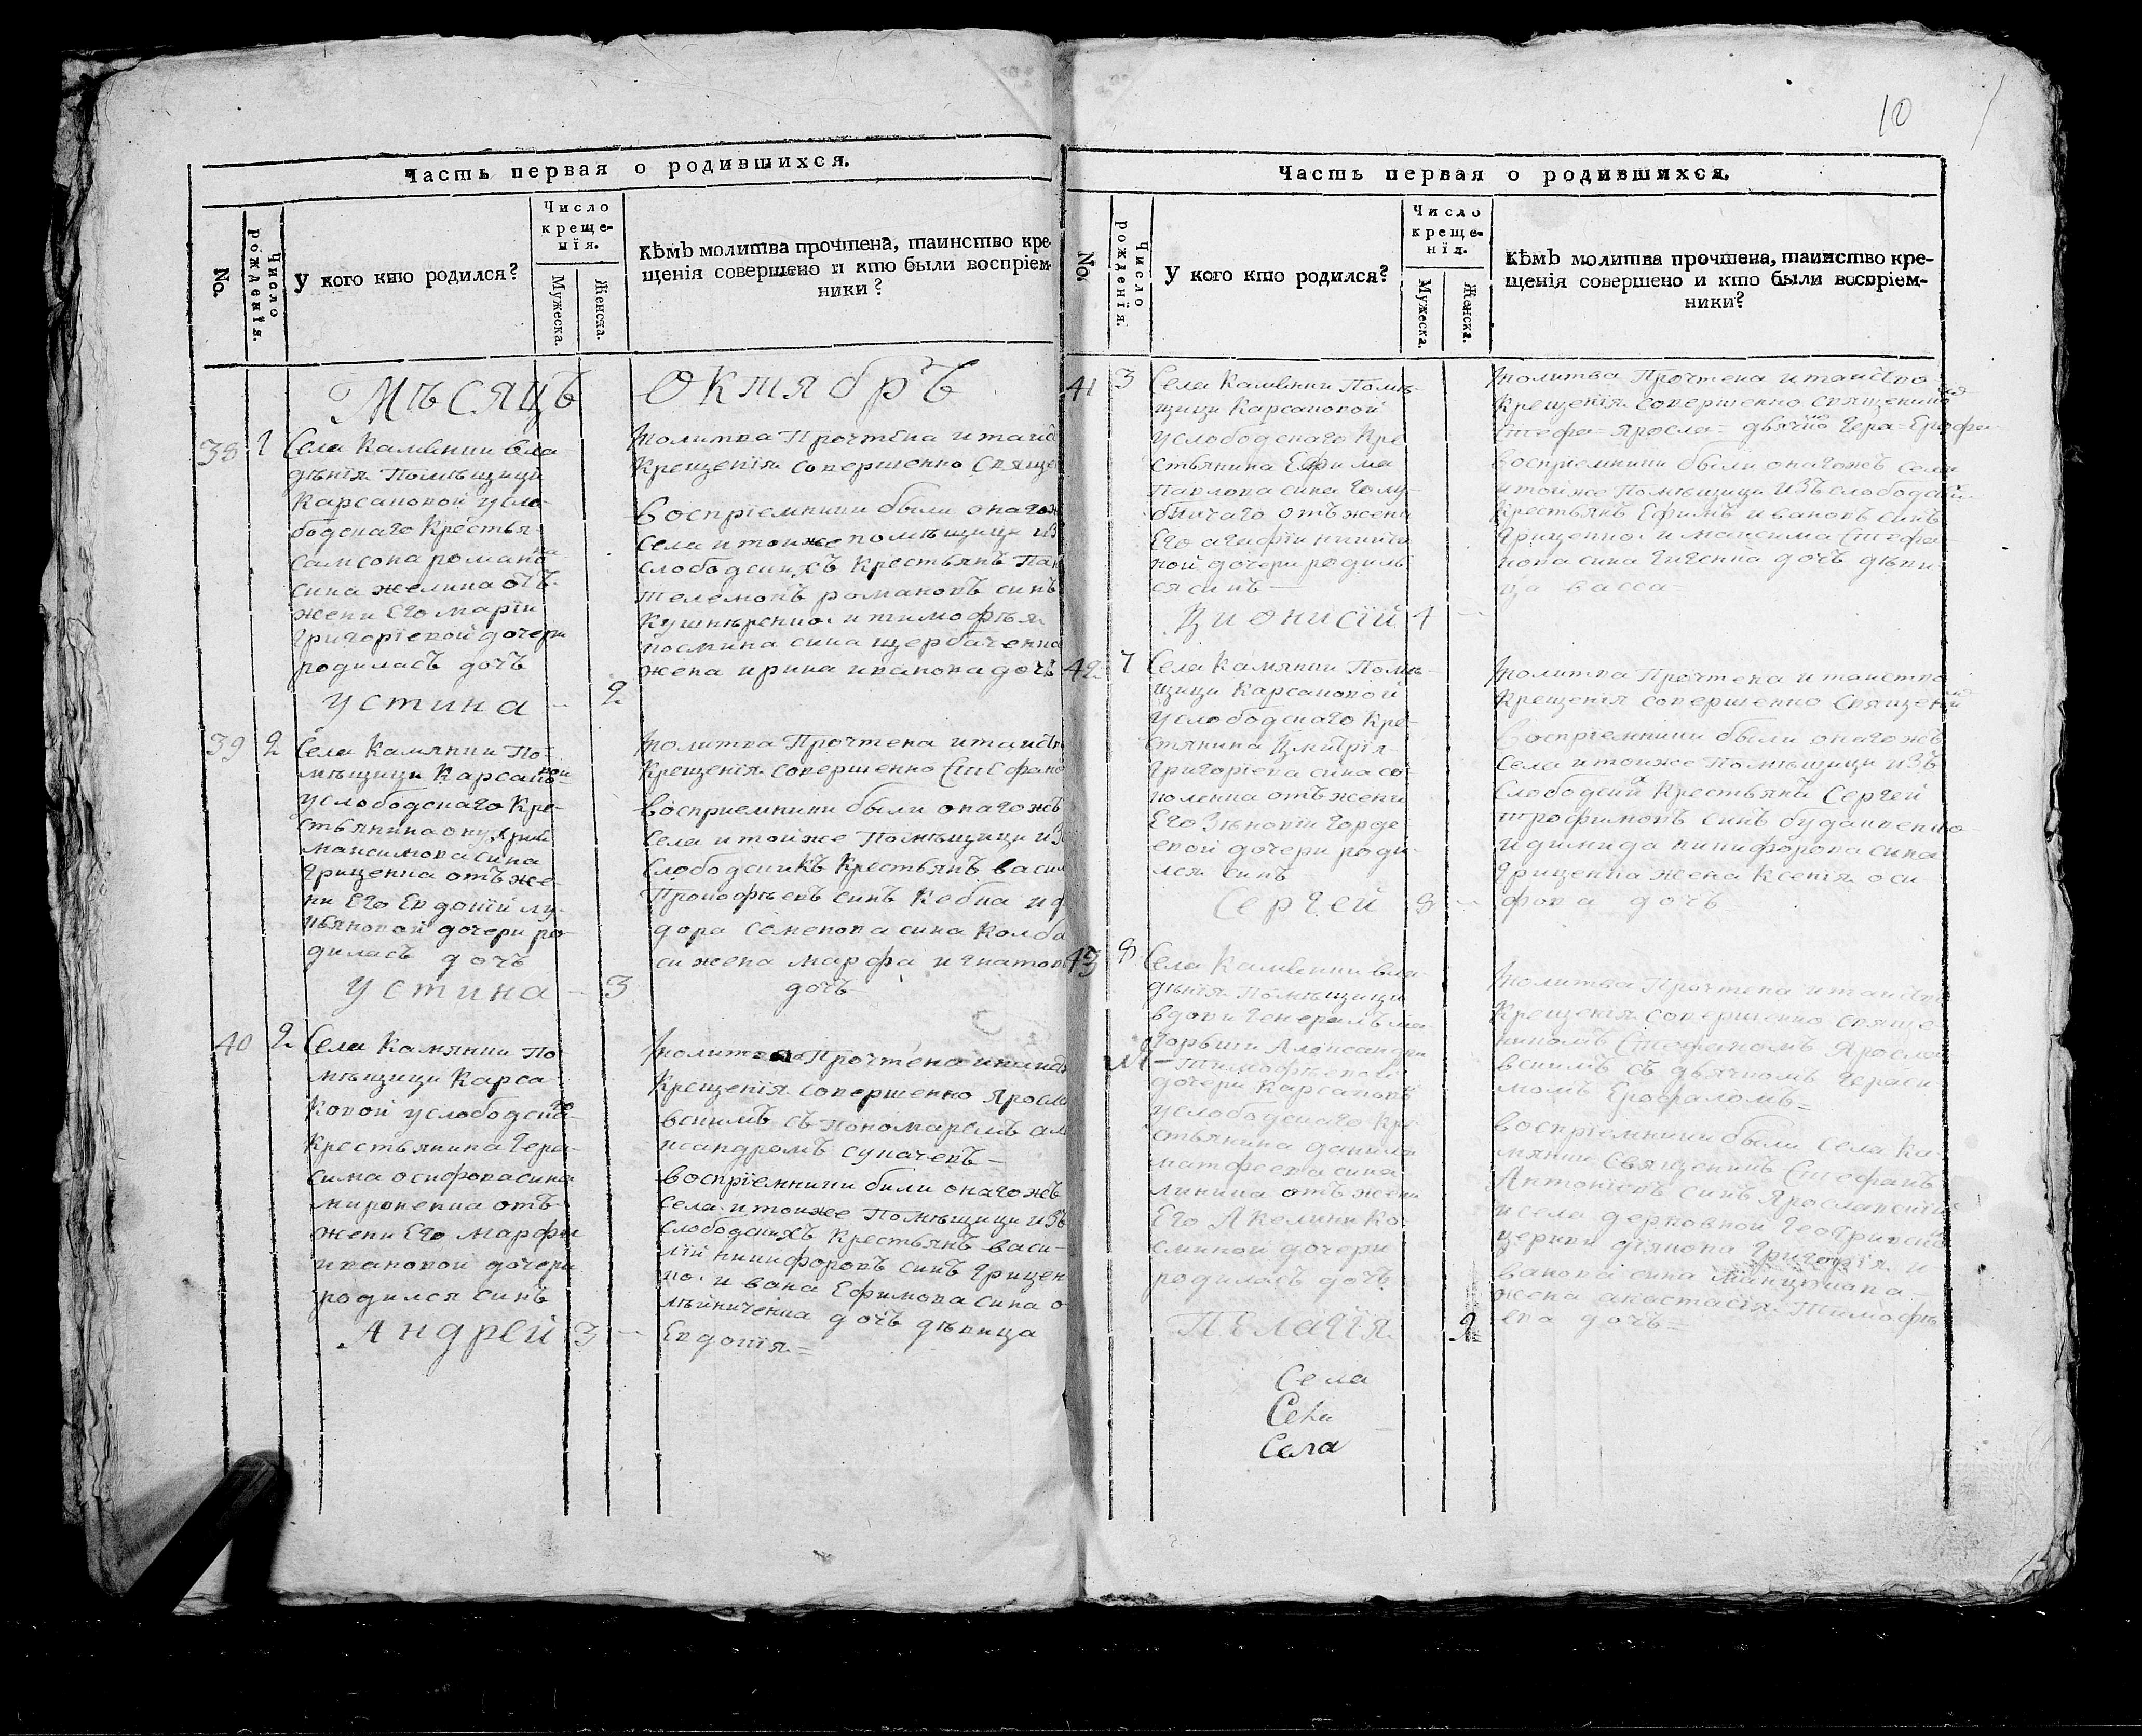 10
Часть первая о родившихся.
No.
Число рожденїя.
У кого кто родился?
Число
креще-
нїя.
Мужеска.
Женска.
Кѣмъ молитва прочтена, таинство кре-
щенія совершено и кто были воспріем-
ники?
Мѣсяцъ Октябръ
38
1
Села Камянки вла
дѣнія Помѣщици
Карсаковой усло
бодскаго Крестья
Самсона романо
сина желина отъ
жени Его маріи
Григоріевой дочери
родилась дочъ
Устина
2
молитва Прочтена и таи
Крещенїя совершенно Свяще
Воспріемники были онагож
села и тоиже помѣщици из
слободскихъ Крестьянъ Пан
телемонъ романовъ синъ
Кушнѣренко и тимофѣя
косміна сина щербаченка
жена ирина иванова дочъ
39
2
Села Камянки По
мѣщици Карсако
услободскаго Кре-
стьянина
максимова сина
Гриценка отъ же-
ни Его Евдокіи лу
кьяновой дочери ро
дилась дочъ
Устина
3
молитва Прочтена и таиств
Крещенїя совершенно Стефано
воспріемники были онагожъ
села и тойже Помѣщици из
Слободскихъ Крестьянъ васи
Прокофьевъ синъ Кобка и ф
дора Семенова сина Колба
си жена марфа игнатов
дочъ
40
2
Села Камянки По
мѣщици Карса
ковой услободска
го
крестьянина Гера-
сима осифова сина
мироненка отъ
жени Его Марфи
ивановой дочери
родился синъ
Андрей
3
молитва Прочтена и таис
Крещенїя совершенно Яросла
вскимъ съ пономаремъ ал
ксандромъ сукачевъ
воспріемники били онагожъ
села и тоиже Помѣщици изъ
слободскихъ Крестьянъ васи-
лій никифоровъ синъ Грицен
ко и вана Ефимова сина о
мѣйниченка дочъ дѣвица
Евдокія
Часть первая о родившихся.
No.
Число рожденїя.
У кого кто родился?
Число
креще-
нїя.
Мужеска.
Женска.
Кѣмъ молитва прочтена, таинство кре-
щенія совершено и кто были воспріем-
ники?
41
3
Села Камянки Помѣ-
щици Карсаковой
услободскаго Кре
стьянина Ефима
Павлова сина Голу-
бничаго отъ жени
Его агафіи никити
ной дочери родил
ся синъ
Дионисій
4
молитва Прочтена и таиство
крещенїя совершенно священико
Стефа= Яросла= дьячко Гера= Ерофа
воспріемники были онагожъ села
и тойже Помѣщици изъ слободски
Крестьянъ Ефимъ ивановъ синъ
Гриценко и максима Стефа
нова сина Гигенка дочъ дѣви
ца васса
42
7
Села Камянки Помѣ-
щици Карсаковой
услободскаго Кре-
стянина Дмитрія
Григоріева сина со
коленка отъ жени
Его Зѣновіи Горде
евой дочери роди-
лся синъ
Сергей
8
молитва Прочтена и таиство
крещенїя совершенно Священ
Воспріемники были онагожъ
Села и тоиже Помѣщици изъ
Слободских Крестьянъ Сергей
трофимовъ синъ будаквенко
и димида никифорова сина
Гриценка жена Ксенія оси
фова дочъ
43
8
Села Камянки вла-
дѣнія Помѣщици
вдови Генералъ ма-
Іорьши Александри
М
Тимофѣевой
дочери Карсаковой
услободскаго кре-
стьянина данила
матфеева сина
линика отъ жени
Его Акелини Ко
сминой дочери
родилась дочъ
Пелагія
9
молитва Прочтена и таиство
Крещенїя совершенно свяще
никомъ Стефаномъ Яросла
вскимъ съ дьячкомъ Гераси
момъ Ерофаломъ
воспріемники были села Ка
мянки Священикъ Стефанъ
Антоніевъ синъ Ярославскій
и села
церкви діякона Григорія и
ванова сина
жена анастасія Тимофѣ
ева дочъ
Села
Села
Села